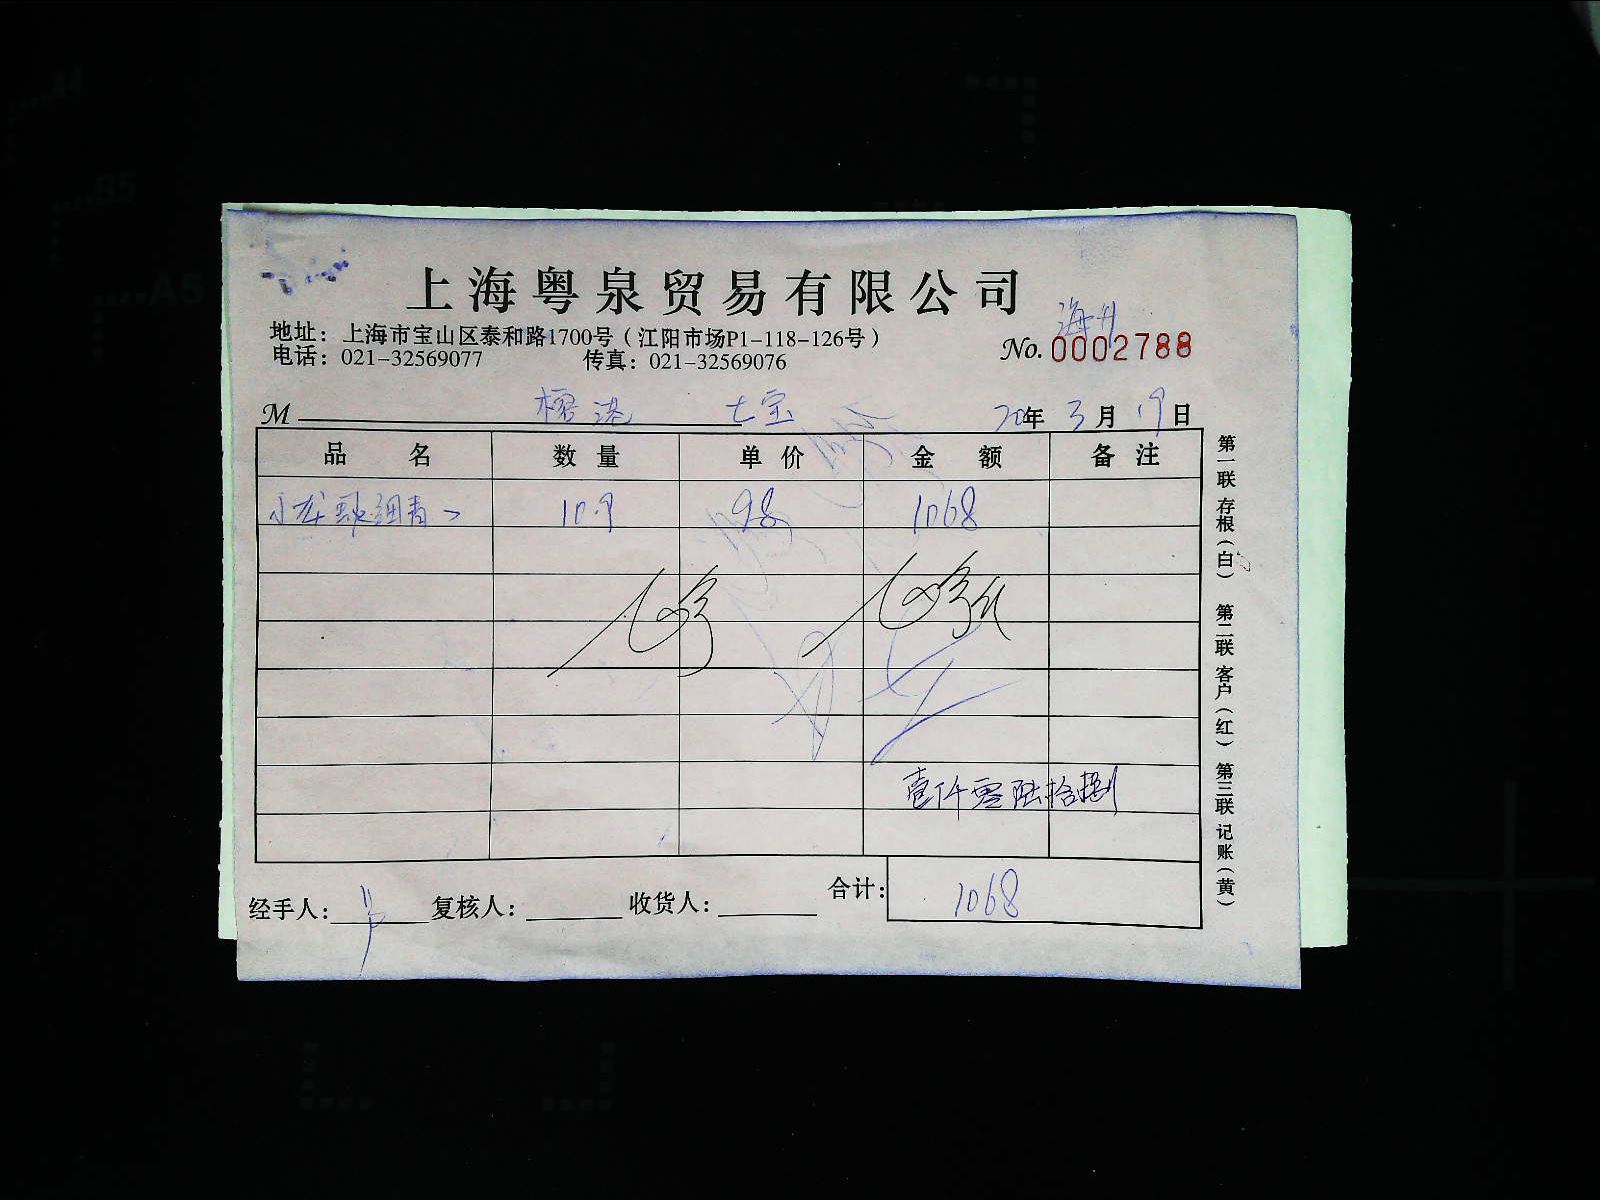 上海粤泉贸易有限公司
地址：上海市宝山区泰和路1700号（江阳市场P1-118-126号）
电话：021-32569077 传真：021-32569076
No. 0002788
M 港 七宝 20年 3月 19日
品名 数量 单价 金额 备注
小龙 10.9 98 1068
壹仟零陆拾捌
经手人： 复核人： 收货人： 合计： 1068
第一联 存根（白） 第二联 客户（红） 第三联 记账（黄）